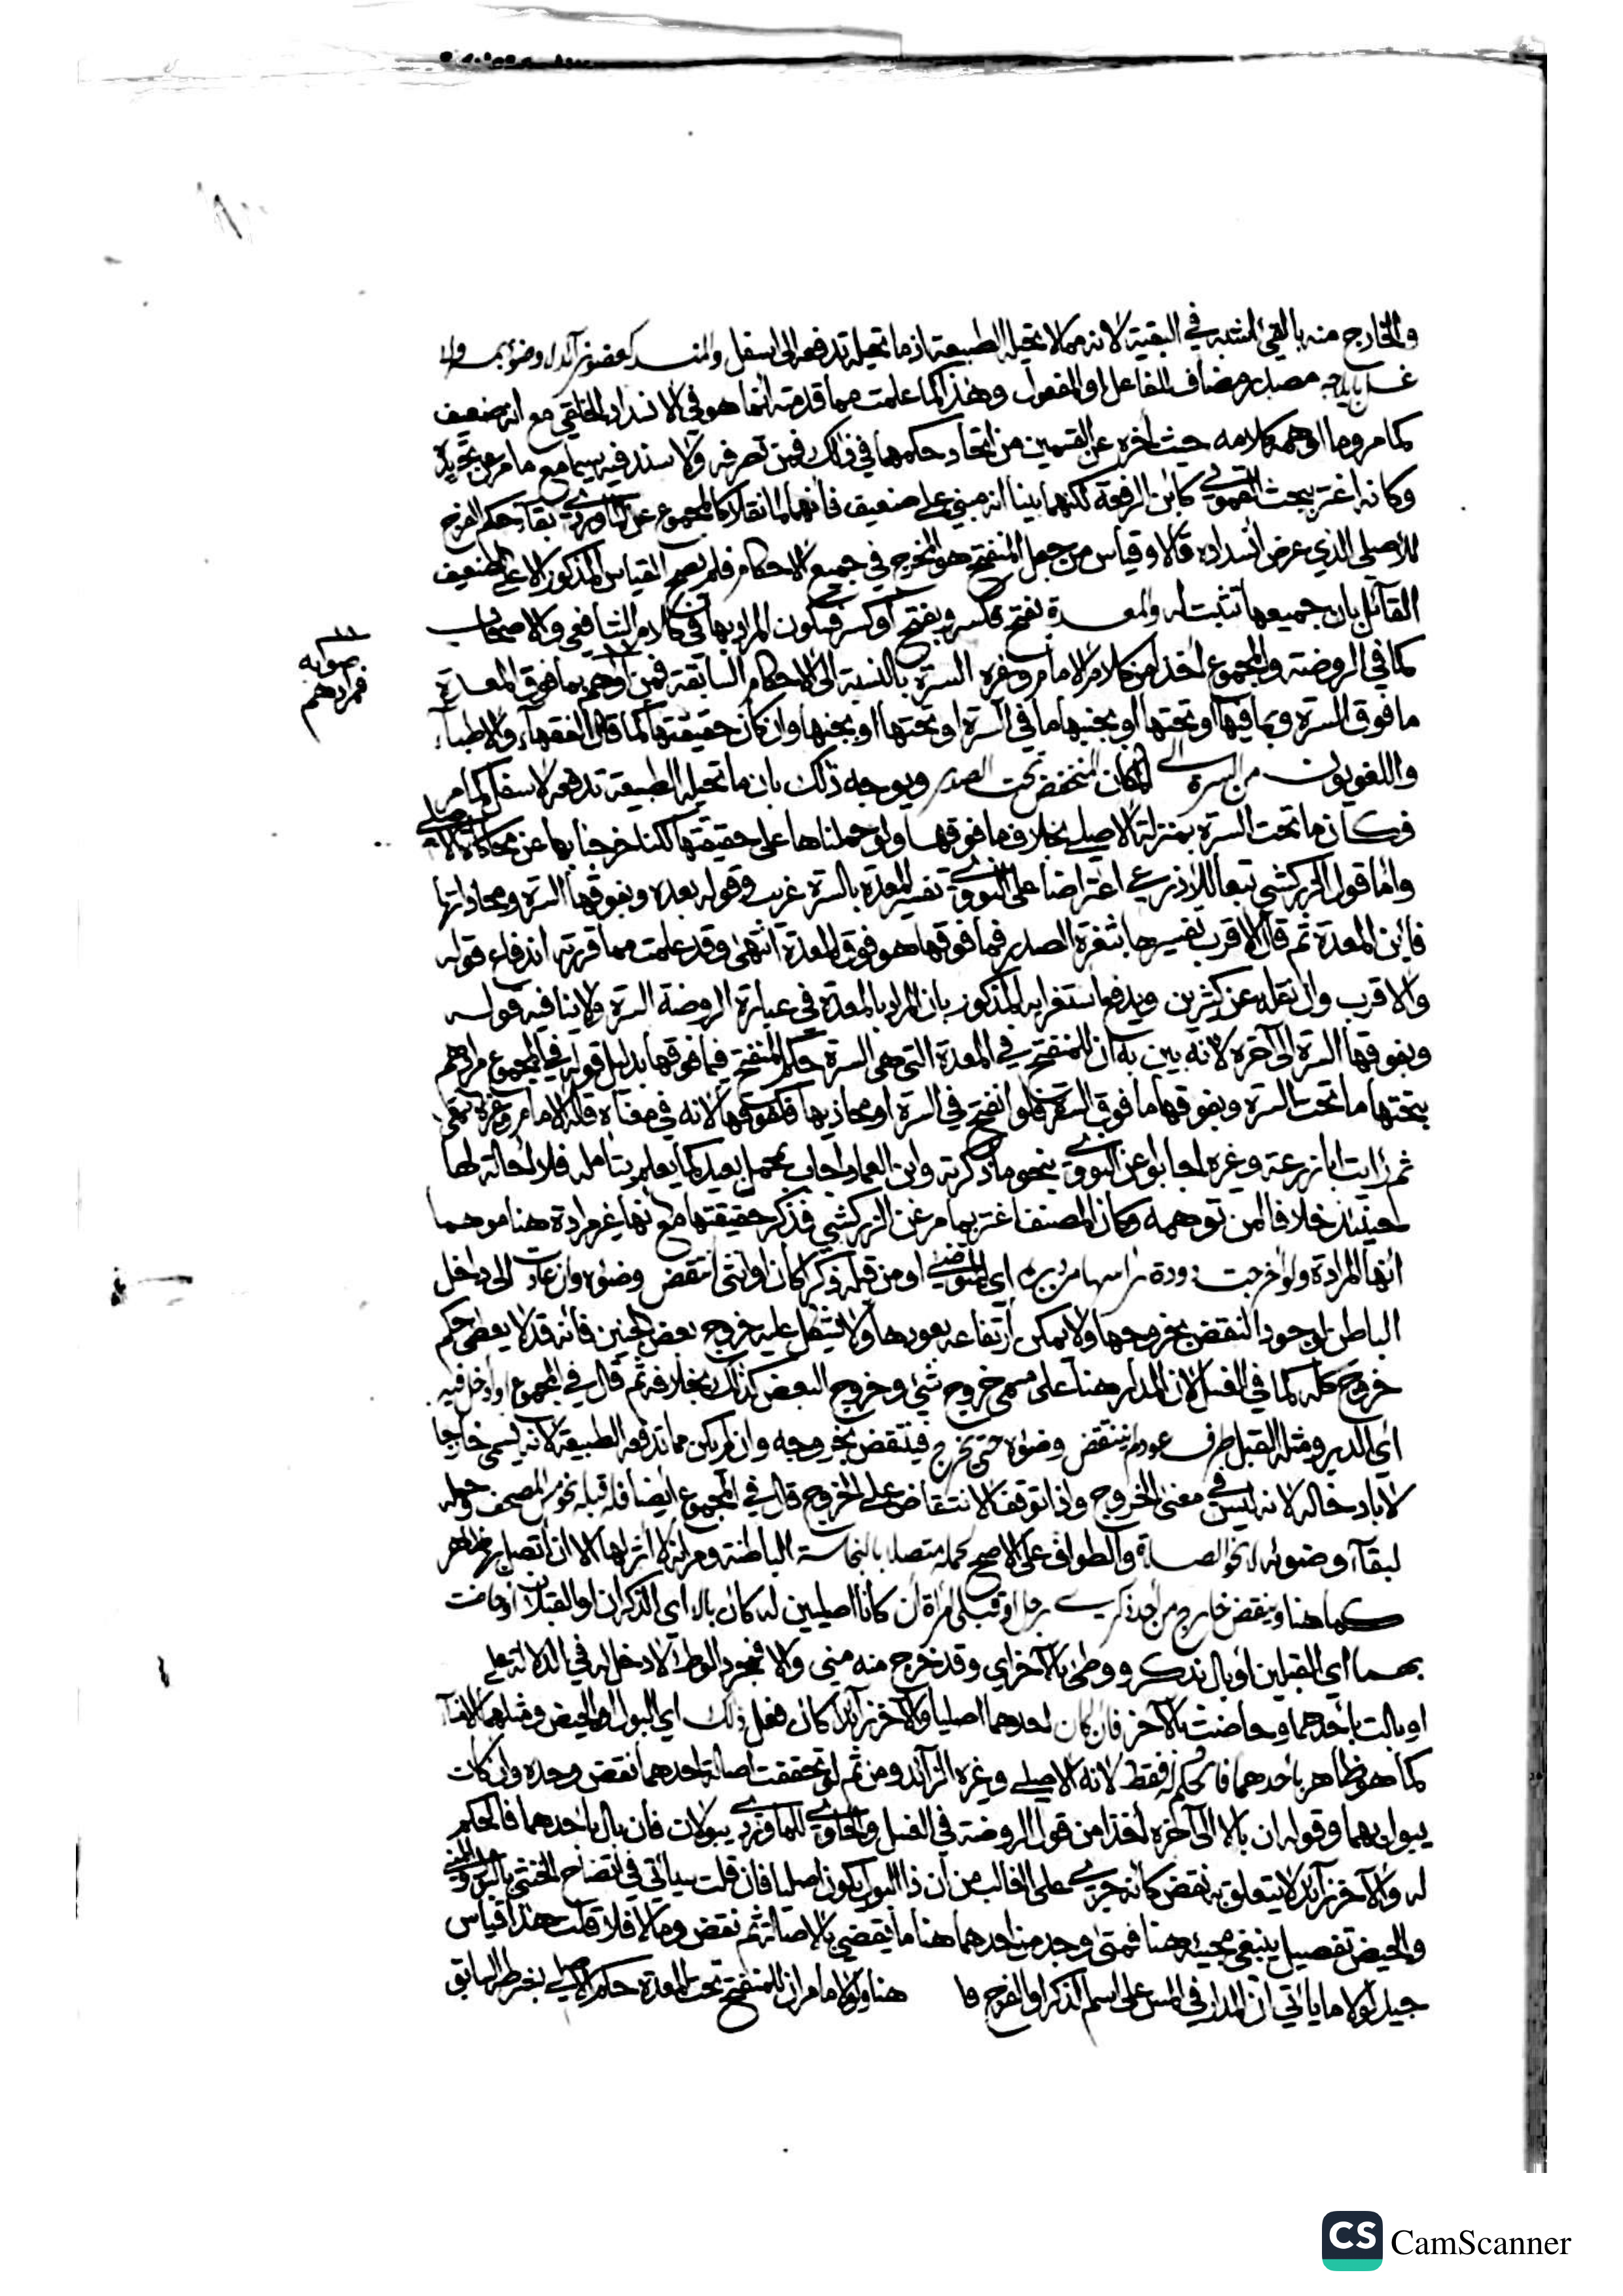 والخارج منه بالقيئ اشبه في البقية لانه مما لا تحيله الطبيعة اذ ما تحيله تدفعه الى اسفل والمنسد كعضو زائد لا وضوء بمسه ولا
غسل بايلاجه مصدر مضاف للفاعل او المفعول وهذا كما علمت مما قدمته انما هو في الانسداد الخلقي مع انه ضعيف
كما مر وما اوهمه كلامه حيث أخره عن القسمين من اتحاد حكمهما في ذلك فمن تصرفه ولا سند فيه سيما مع ما مر عن
وكانه اغتر ببحث القمولي كابن الرفعة لكنهما بينا انه مبني على ضعيف فانهما لما نقلا كالمجموع عن الماوردي بقاء حكم الفرج
للاصلي الذي عرض انسداده قالا وقياس من جعل المنفتح هو المخرج في جميع الاحكام فلم يصح القياس المذكور الا على الضعيف
القائل بان جميعها تثبت له والمعدة بفتح فكسر وبفتح او كسر فسكون المراد بها في كلام الشافعي والاصحاب
كما في الروضة والمجموع اخذا من كلام الامام وغيره السرة بالنسبة الى الاحكام السابقة فمن اوهم بما فوق المعدة
ما فوق السرة وبما فيها او تحتها او بجنبها ما في السرة او تحتها او بجنبها وان كان حقيقتها كما قال الفقهاء والاطباء
واللغويون من السرة الى المكان المنخفض تحت الصدر ويوجه ذلك بان ما تحيله الطبيعة تدفعه لاسفل كما مر
فكان ما تحت السرة بمنزلة الاصلي بخلاف ما فوقها ولو حملناها على حقيقتها لكنا خرجنا بها عن محاكاة الاصلي
واما قول الزركشي تبعا للاذرعي اعتراضا على النووي تفسير المعدة بالسرة غريب وقوله بعده وبفوقها السرة ومحاذاتها
فاين المعدة ثم قال الاقرب تفسيرها بثغرة الصدر فما فوقها هو فوق المعدة انتهى وقد علمت مما قررته اندفاع قوله
والاقرب وان نقله عن كثيرين ويدفع استغرابه المذكور بان المراد بالمعدة في عبارة الروضة السرة ولا ينافيه قوله
وبفوقها السرة الى آخره لانه بين به ان للمنفتح في المعدة التي هي السرة حكم المنفتح فيما فوقها بدليل قوله في المجموع مرادهم
بتحتها ما تحت السرة وبفوقها ما فوق السرة فلو انفتح في السرة او محاذيها فكفوقها لانه في معناه قاله الامام وغيره انتهى
ثم رايت ابا زرعة وغيره اجابوا عن النووي بنحو ما ذكرته وابن العماد اجاب بمحمل بعيد كما يعلم بتأمله فلا احالة لها
حينئذ خلافا لمن توهمه وكان المصنف اغتر بما مر عن الزركشي فذكر حقيقتها مع انها غير مرادة هنا موهما
انها المرادة ولو اخرجت دودة راسها من دبره اي المتوضئ او من قبله ذكرا كان او انثى انتقض وضوءه وان عادت الى داخل
الباطن لوجود النقض بخروجها ولا يمكن ارتفاعه بعودها ولا يشكل عليه خروج بعض الجنين فانه قد لا يعطى حكم
خروج كله كما في الغسل لان المدار هنا على مسمى خروج شيئ وخروج البعض كذلك بخلافه ثم قال في المجموع او ادخل فيه
اي الدبر ومثله القبل طرف عود لم ينتقض وضوءه حتى يخرج فينتقض بخروجه وان لم يكن مما تدفعه الطبيعة لانه يسمى خارجا
لا بادخاله لانه ليس في معنى الخروج واذا توقف الانتقاض على الخروج قال في المجموع ايضا فله قبله نحو مس المصحف وحمله
لبقاء وضوئه لا نحو الصلاة والطواف على الاصح لحمله متصلا بالنجاسة الباطنة ومر انه لا اثر لها الا ان اتصل بها ظاهر
كما هنا وينقض خارج من احد ذكري رجل او قبلي امرأة ان كانا اصليين كان بالا اي الذكران او القبلان او حاضت
بهما اي القبلين او بال بذكر ووطئ بالآخر اي وقد خرج منه مني والا فمجرد الوطء لا دخل له في الدلالة على
او بالت باحدهما وحاضت بالآخر فان كان احدهما اصليا والآخر زائدا كان فعل ذلك اي البول والحيض ومثلهما
كما هو ظاهر باحدهما فالحكم له فقط لانه الاصلي وغيره الزائد ومن ثم لو تحققت اصالة احدهما نقض وحده وان كانت
يبول بهما وقوله ان بالا الى آخره اخذا من قول الروضة في الغسل والحاوي للماوردي يبولان فان بال باحدهما فالحكم
له والآخر زائد لا يتعلق به نقض كانه جري على الغالب من ان ذا البول يكون اصليا فان قلت سياتي في اتضاح الخنثى بالبول والمني
والحيض تفصيل ينبغي مجيئه هنا فمتى وجد من احدهما هنا ما يقضي بالاصالة ثم نقض وما لا فلا قلت هذا قياس
جيد لولا ما ياتي ان المدار في المس على اسم الذكر او الفرج وما هنا ولولا ما مر ان للمنفتح تحت المعدة حكم الاصلي بشرطه السابق
صوابه
فمرادهم
CS CamScanner